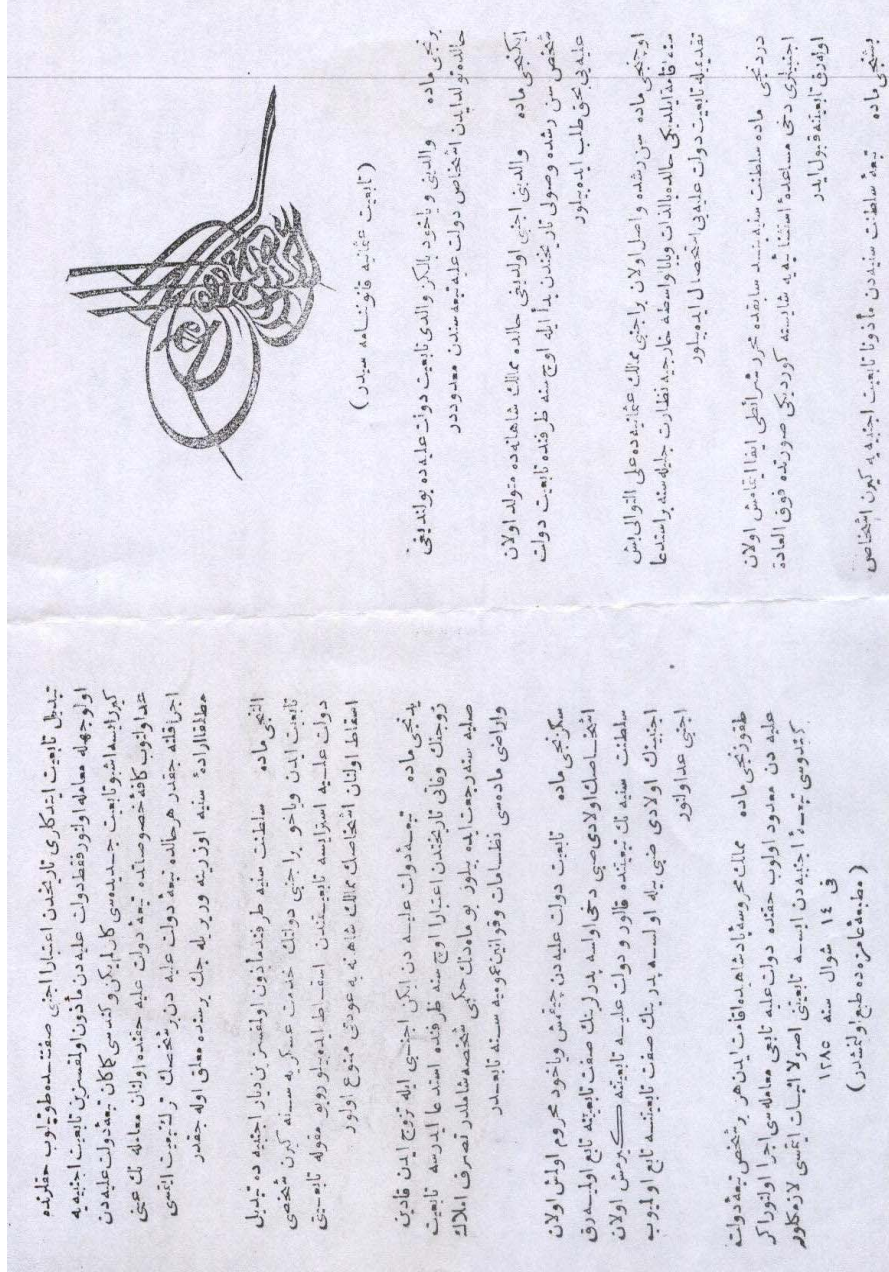 (تابعيت عثمانيه قانوننامه سيدر)
برنجى ماده والدينى وياخود يالكز والدى تابعيت دولت عليه ده بولنديغى
حالده تولد ايدن اشخاص دولت عليه تبعه سندن معدوددر
ايكنجى ماده والدينى اجنبى اولديغى حالده ممالك شاهانه ده متولد اولان
شخص سن رشده وصولى تاريخندن بدأ ايله اوچ سنه ظرفنده تابعيت دولت
عليه يى بحق طلب ايده بيلور
اوچنجى ماده سن رشده واصل اولان بر اجنبى ممالك عثمانيه ده على التوالى بش
سنه اقامت ايلديكى حالده بالذات ويا بالواسطه خارجيه نظارت جليله سنه بر استدعا
تقديمله تابعيت دولت عليه يى استحصال ايده بيلور
دردنجى ماده سلطنت سنيه بند سابقده محرر شرائطى ايفا ايتمامش اولان
اجنبيلرى دخى مساعدۀ استثنائيه يه شايسته كورديكى صورتده فوق العاده
اوله رق تابعيتنه قبول ايدر
بشنجى ماده تبعۀ سلطنت سنيه دن مأذونا تابعيت اجنبيه يه كيرن اشخاص
تبديل تابعيت ايتدكارى تاريخندن اعتبارا اجنبى صفتنده طوتيلوب حقلرنده
اولوجهله معامله اولنور فقط دولت عليه دن مأذون اولمقسزين تابعيت اجنبيه يه
كيرر ايسه اشبو تابعيت جديده سى كأن لم يكن و كنديسى كماكان تبعۀ دولت عليه دن
عد اولنوب كافۀ خصوصاتده تبعۀ دولت عليه حقنده اولنان معامله نك عينى
اجرا قلنه جقدر هرحالده تبعۀ دولت عليه دن بر شخصك ترك تابعيت ايتمسى
مطلقا ارادۀ سنيه اوزرينه ويريله جك بر سنده معلق اوله جقدر
التنجى ماده سلطنت سنيه طرفندن مأذون اولمقسزين ديار اجنبيه ده تبديل
تابعيت ايدن وياخود بر اجنبى دولتك خدمت عسكريه سنه كيرن شخصى
دولت عليه استر ايسه تابعيتندن اسقاط ايده بيلور وبو مقوله تابعيتى
اسقاط اولنان اشخاصك ممالك شاهانه يه عودتى ممنوع اولور
يدنجى ماده تبعۀ دولت عليه دن ايكن اجنبى ايله تزوج ايدن قادين
زوجنك وفاتى تاريخندن اعتبارا اوچ سنه ظرفنده استدعا ايدرسه تابعيت
اصليه سنه رجعت ايده بيلور بو ماده نك حكمى شخصه شاملدر تصرف املاك
واراضى ماده سى نظامات وقوانين عموميه سنه تابعدر
سكزنجى ماده تابعيت دولت عليه دن چيقمش وياخود محروم اولمش اولان
اشخاصك اولادى صبى دخى اولسه پدرلرينك صفت تابعيتنه تابع اولميه رق
سلطنت سنيه نك تبعيتنده قالور و دولت عليه تابعيتنه كيرمش اولان
اجنبينك اولادى صبى بيله اولسه پدرينك صفت تابعيتنه تابع اولميوب
اجنبى عد اولنور
طقوزنجى ماده ممالك محروسۀ پادشاهيده اقامت ايدن هر بر شخص تبعۀ دولت
عليه دن معدود اولوب حقنده دولت عليه تابعى معامله سى اجرا اولنور اكر
كنديسى تبعۀ اجنبيه دن ايسه تابعيتنى اصولا اثبات ايتمسى لازمكلور
فى ١٤ شوال سنه ١٢٨٥
(مطبعۀ عامره ده طبع اولنمشدر)